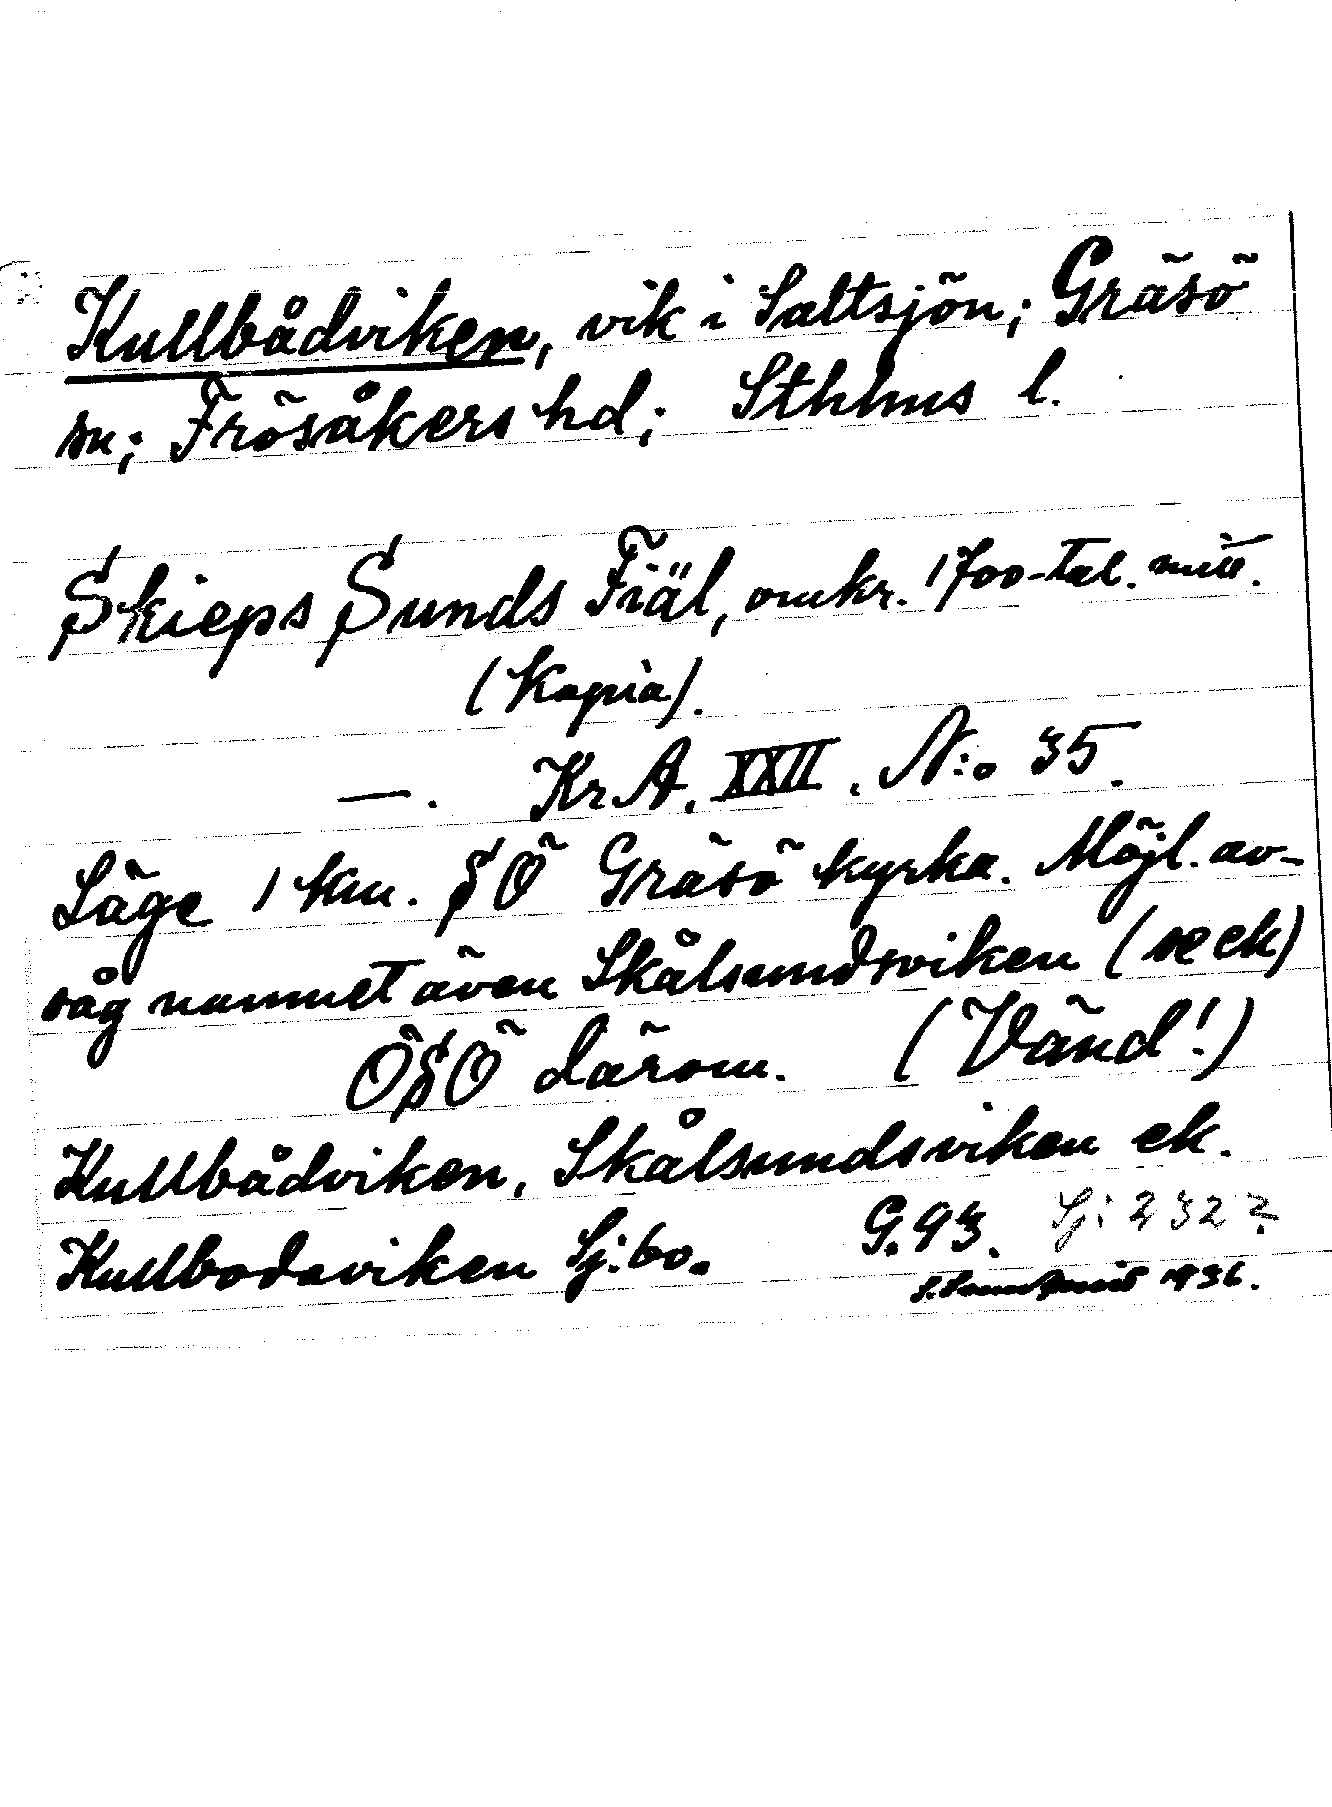 Kullbådviken, vik i Saltsjön; Gräsö
sn; Frösåkers hd; Sthlms l.
Skieps Sunds Fiäl, omkr. 1700-tal. mitt.
(Kopia).
—. Kr. A. XXII. N:o 35.
Läge 1 km. SÖ Gräsö kyrka. Möjl. av-
såg namnet även Skålsundsviken (se ek)
ÖSÖ därom. (Vänd!)
Kullbådviken, Skålsundsviken ek.
Kullbodaviken Sj: 60. G. 93. Sj: 232?
1936.